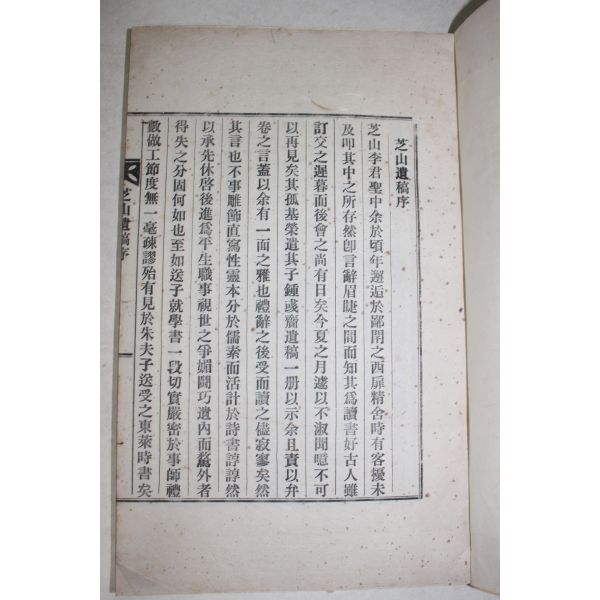 芝山遺稿序
芝山李君聖中余於頃年邂逅於鄙閈之西扉精舍時有客擾未
及叩其中之所存然卽言辭眉睫之間而知其爲讀書好古人雖
訂交之遲暮而後會之尚有日矣今夏之月遽以不淑聞噫不可
以再見矣其孤基榮遣其子鍾彧齎遺稿一册以示余且責以弁
卷之言蓋以余有一面之雅也禮辭之後受而讀之儘寂寥矣然
其言也不事雕飾直寫性靈本分於儒素而活計於詩書諄諄然
以承先休啓後進爲平生職事視世之爭媚鬪巧遺內而騖外者
得失之分固何如也至如送子就學書一段切實嚴密於事師禮
數做工節度無一毫疎謬殆有見於朱夫子送受之東萊時書矣
芝山遺稿序